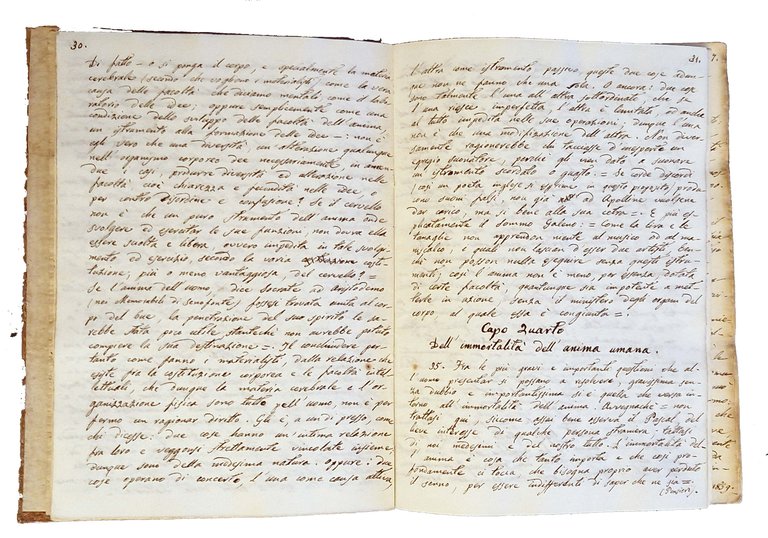 30.
Di fatto – o si ponga il corpo, e specialmente la materia
cerebrale (secondo che vogliono i materialisti) come la vera
causa delle facoltà che diciamo mentali come il labo-
ratorio delle idee; oppure semplicemente come una
condizione dello sviluppo delle facoltà dell'anima,
un istrumento alla formazione delle idee –: non è
egli vero che una diversità, un'alterazione qualunque
nell'organismo corporeo dee necessariamente in amen-
due i casi, produrre diversità ed alterazione nelle
facoltà cioè chiarezza e fecondità nelle idee o
per contro disordine e confusione? Se il cervello
non è che un puro strumento dell'anima onde
svolgere ed esercitar le sue funzioni, non dovrà ella
essere sciolta e libera ovvero impedita in tale svolgi-
mento ed esercizio, secondo la varia costi-
tuzione, più o meno vantaggiosa, del cervello? =
Se l'anima dell'uomo, dice Socrate ad Aristodemo
(nei Memorabili di Senofonte) fossesi trovata unita al cor-
po del bue la penetrazione del suo spirito le sa-
rebbe stata poco utile stanteché non avrebbe potuto
compiere la sua destinazione =. Il conchiudere per-
tanto come fanno i materialisti, dalla relazione che
esiste fra la costituzione corporea e le facoltà intel-
lettuali, che dunque la materia cerebrale e l'or-
ganizzazione fisica sono tutto nell'uomo, non è per
fermo un ragionar diretto. Gli è, a un di presso, come
chi dicesse: due cose hanno un'intima relazione
fra loro e veggonsi strettamente vincolate insieme,
dunque sono della medesima natura. oppure: due
cose operano di concerto, l'una come causa attiva
31.
l'altra come istrumento passivo, queste due cose adun-
que non ne fanno che una sola. O ancora: due cose
sono talmente l'una all'altra subordinate, che se
l'una riesce imperfetta l'altra è limitata ed anche
al tutto impedita nelle sue operazioni: dunque l'una
non è che una modificazione dell'altra. Non diver-
samente ragionerebbe chi tacciasse d'inesperto un
egregio suonatore, perché gli vien dato a suonare
un istrumento scordato o guasto. = Se corde discordi
(così un poeta inglese si esprime in questo proposito) produ-
cono suoni falsi, non già ad Apolline vuolsene
dar carico, ma si bene alla sua cetra =. E più es-
plicitamente il sommo Galeno: = Come la lira e le
tanaglie non apprendon niente al musico ed al ma-
niscalco, i quali non lascian d'esser due artisti, ben-
chè non possan nulla eseguire senza questi istru-
menti; così l'anima non è meno, per essenza, dotata
di certe facoltà, quantunque sia impotente a met-
terle in azione, senza il ministero degli organi del
corpo, al quale essa è congiunta =.
Capo Quarto
Dell'immortalità dell'anima umana.
35. Fra le più gravi e importanti questioni che al-
l'uomo presentar si possano a risolvere, gravissima sen-
za dubbio e importantissima si è quella che versa in-
torno all'immortalità dell'anima. Avvegnaché = non
trattasi qui, siccome assai bene osserva il Pascal, del
lieve interesse di qualche persona straniera: trattasi
di noi medesimi e del nostro tutto. L'immortalità del-
l'anima è cosa che tanto importa e che così pro-
fondamente ci tocca, che bisogna proprio aver perduto
il senno, per essere indifferenti di saper che ne sia =
(Pensieri).
7.
1839.